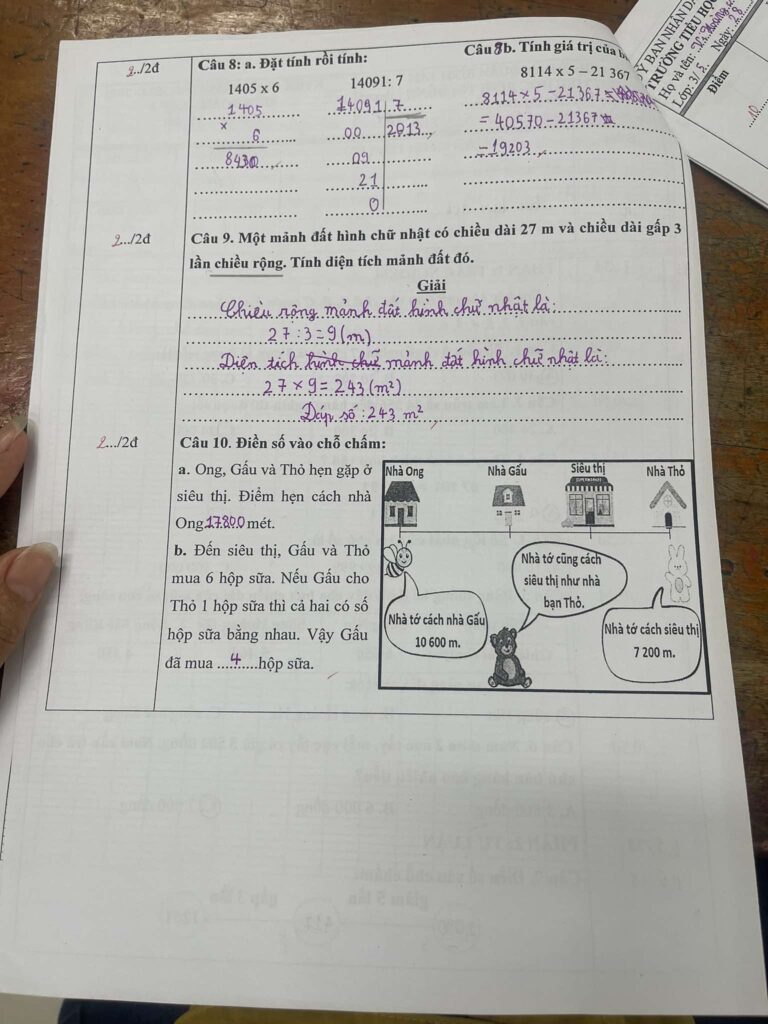 ỦY BAN NHÂN D
TRƯỜNG TIỂU HỌC
Họ và tên:
Lớp: 3/ 5. Ngày: 28
Điểm
10
2../2đ
Câu 8: a. Đặt tính rồi tính:
1405 x 6
14091: 7
1405
x
6
8430
14091 7
00 2013
09
21
0
Câu 8b. Tính giá trị của b
8114 x 5 – 21 367
8114 x 5 – 21367 =
= 40570 – 21367
= 19203
2.../2đ
Câu 9. Một mảnh đất hình chữ nhật có chiều dài 27 m và chiều dài gấp 3
lần chiều rộng. Tính diện tích mảnh đất đó.
Giải
Chiều rộng mảnh đất hình chữ nhật là:
27 : 3 = 9 (m)
Diện tích hình chữ mảnh đất hình chữ nhật là:
27 x 9 = 243 (m²)
Đáp số : 243 m²
2.../2đ
Câu 10. Điền số vào chỗ chấm:
a. Ong, Gấu và Thỏ hẹn gặp ở
siêu thị. Điểm hẹn cách nhà
Ong 17800 mét.
b. Đến siêu thị, Gấu và Thỏ
mua 6 hộp sữa. Nếu Gấu cho
Thỏ 1 hộp sữa thì cả hai có số
hộp sữa bằng nhau. Vậy Gấu
đã mua ....4.....hộp sữa.
Nhà Ong
Nhà Gấu
Siêu thị
Nhà Thỏ
SUPERMARKET
Nhà tớ cách nhà Gấu
10 600 m.
Nhà tớ cũng cách
siêu thị như nhà
bạn Thỏ.
Nhà tớ cách siêu thị
7 200 m.